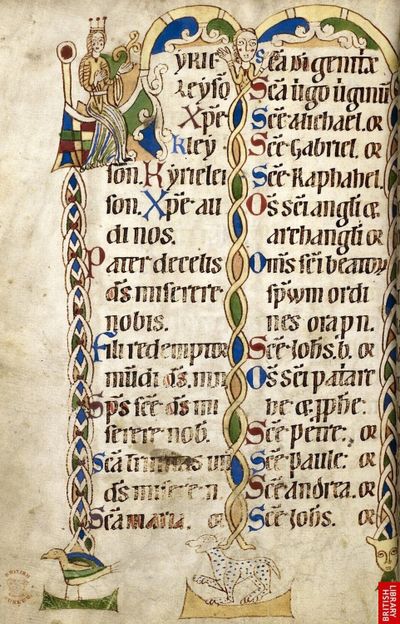 KYRIE
Leyſõ
Xpe
Kley
ſon. Kyrielei
ſon. Xpe au
di nos.
Pater de celis
ds miſerere
nobis.
Fili redemptor
mũdi ds. mis
Sps ſce ds mi
ſerere nob.
Sca trinitas un
ds miſere n.
Sca maria. or
Sca di genitrix
Sca ũgo ũginũ
Sce Michael. or
Sce Gabriel. or
Sce Raphahel.
Os sci angli &
archangli or
Oms sci beator
spuum ordi
nes ora p n.
Sce Johs. b. or
Os sci patar
he & pphe:
Sce petre., or
Sce paule: or
Sce andrea. or
Sce Johs. or
BRITISH
LIBRARY